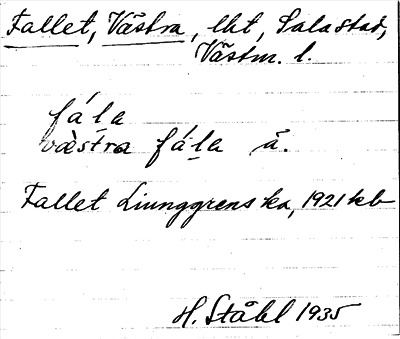 Fallet, Västra, lht, Sala stad,
Västm. l.
fá̱la
væ̀stra fá̱la ä.
Fallet Ljunggrenska, 1921 kb
H. Ståhl 1935